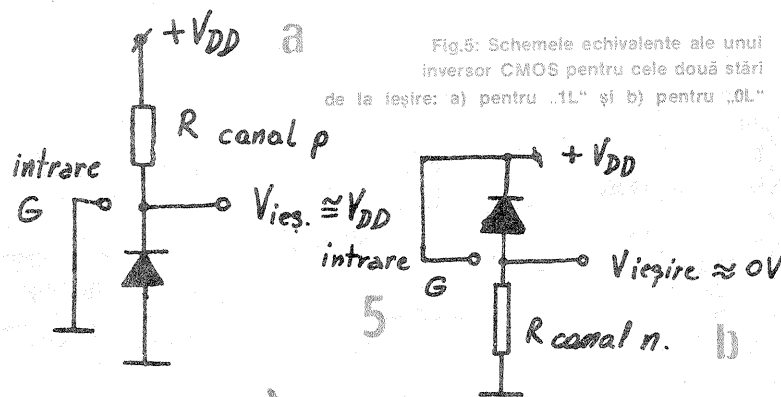 +VDD
a
Fig.5: Schemele echivalente ale unui
inversor CMOS pentru cele două stări
de la ieşire: a) pentru „1L“ şi b) pentru „0L“
R canal p
intrare
G
Vieş. ≅ VDD
+ VDD
intrare
G
Vieşire ≈ 0V
5
R canal n.
b